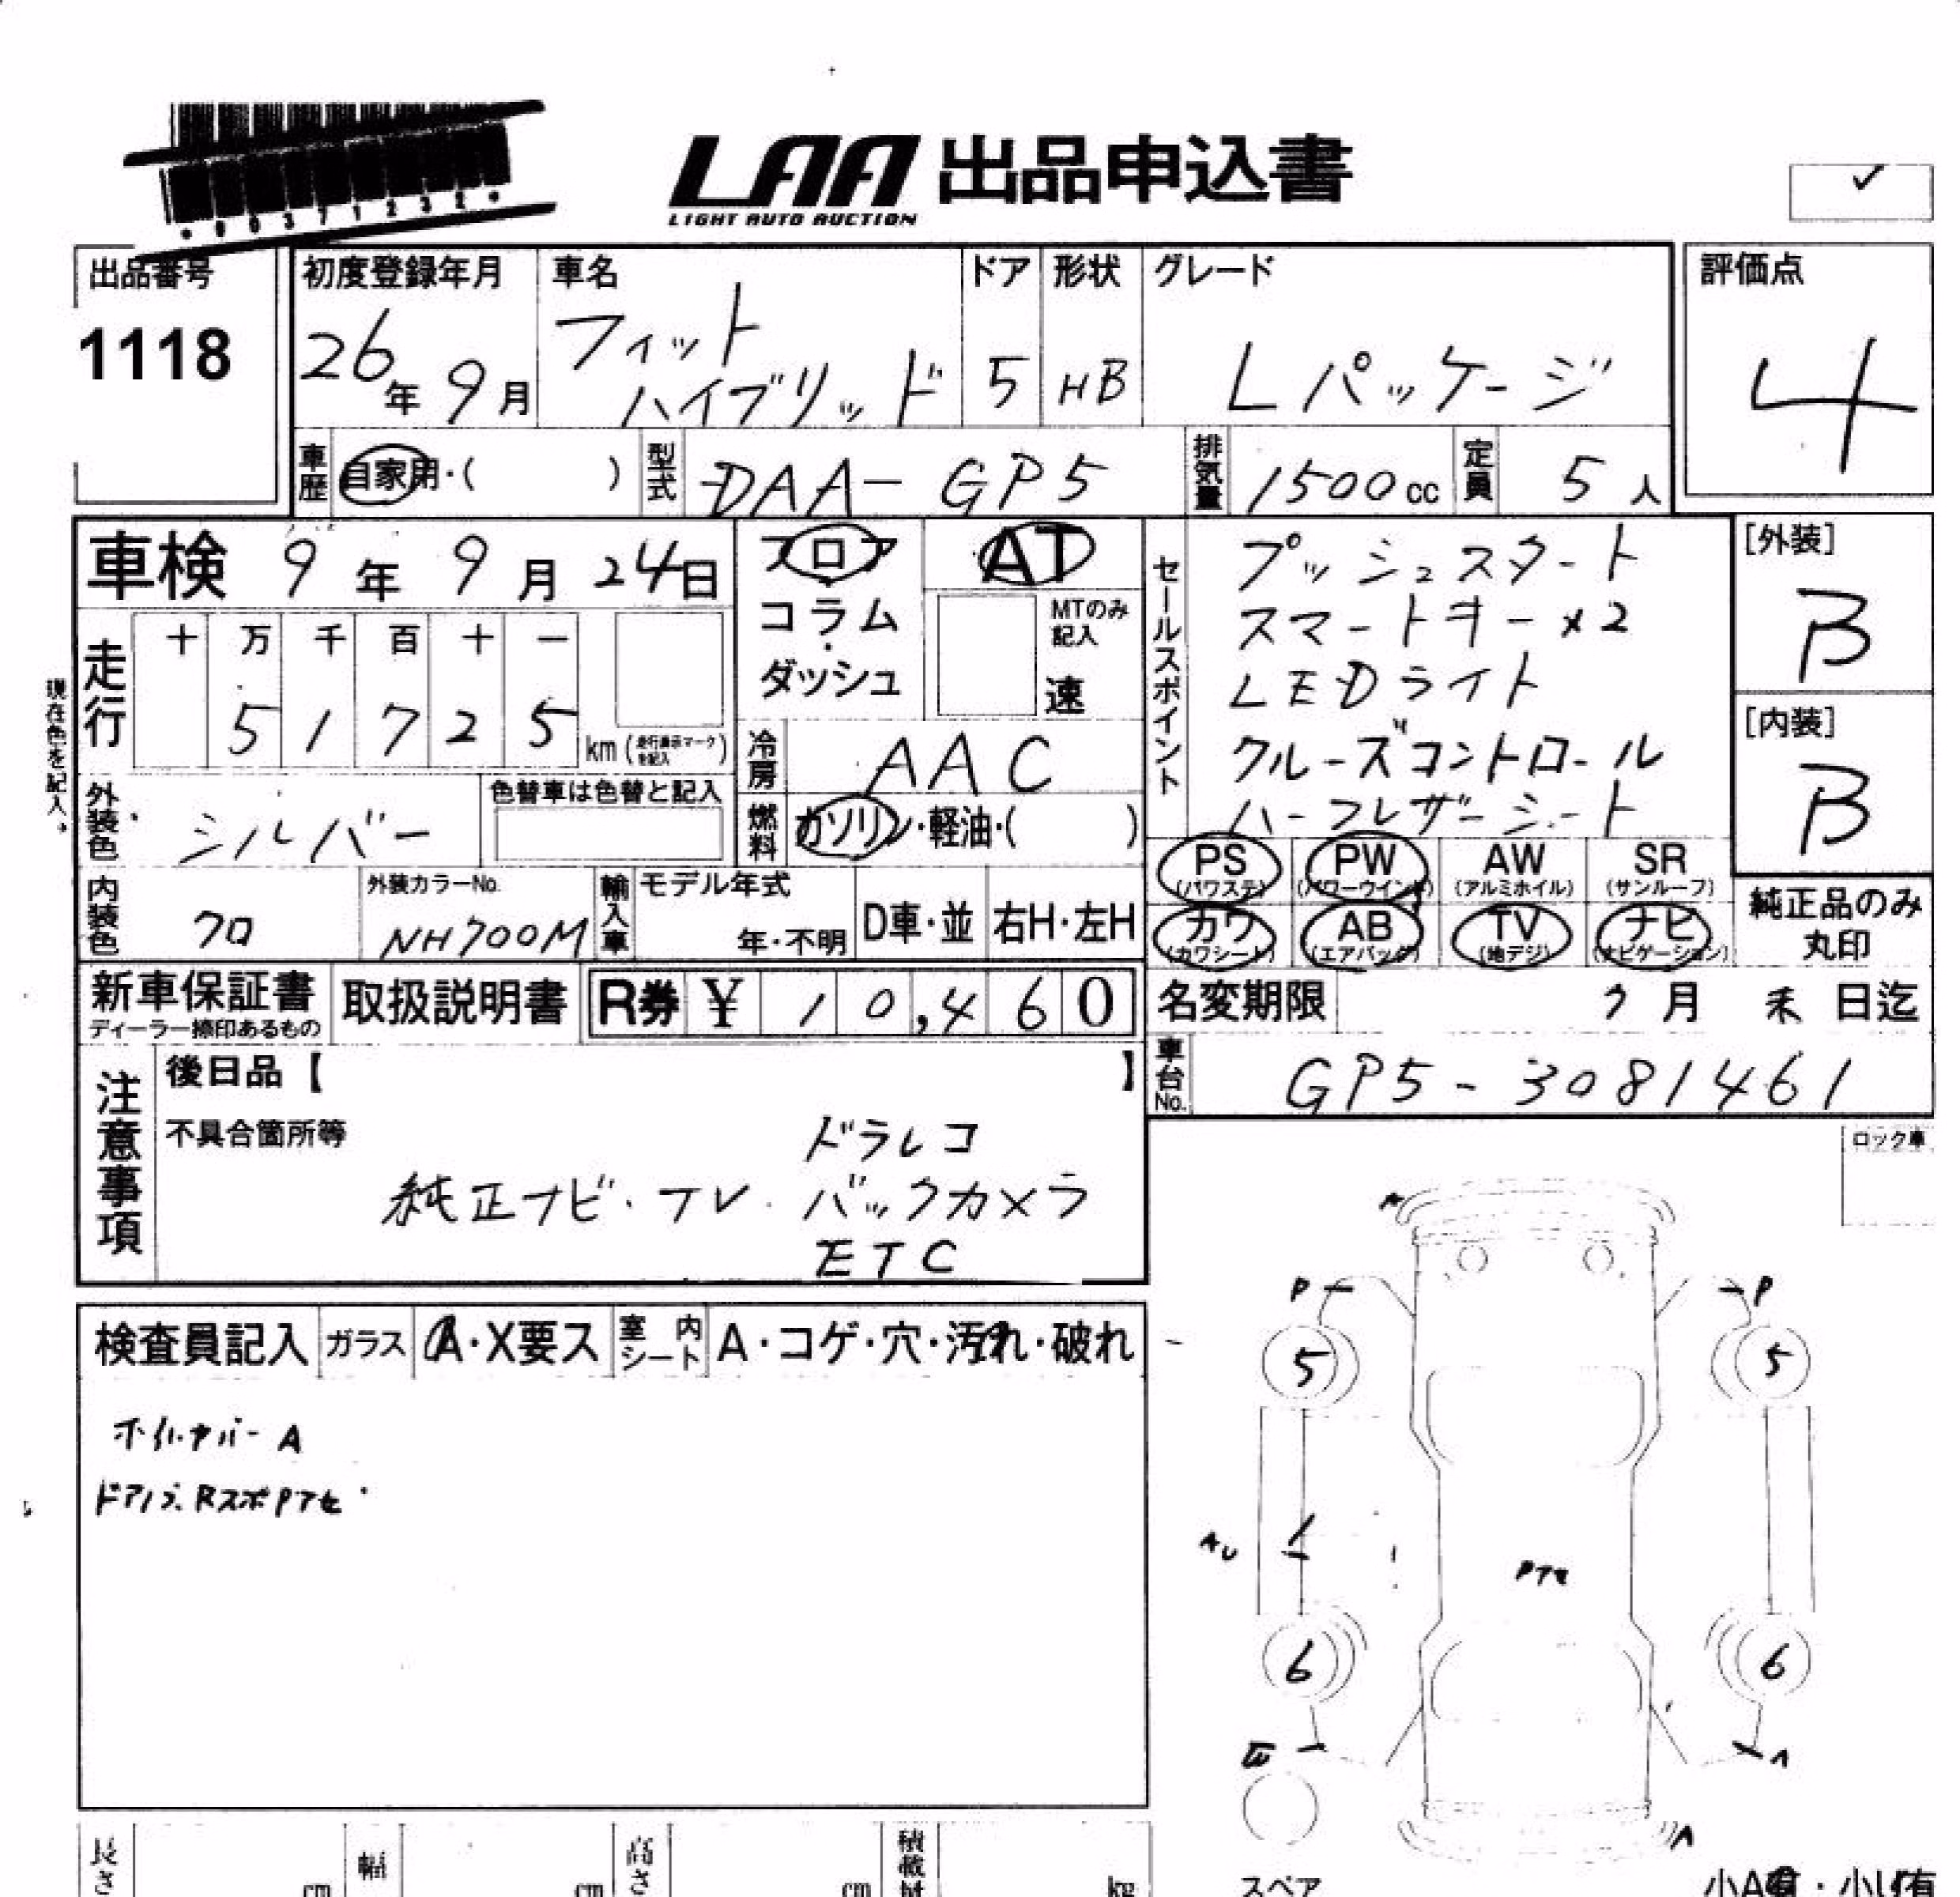 LAA 出品申込書
LIGHT AUTO AUCTION
✓
出品番号
1118
初度登録年月
26年 9月
車名
フィット
ハイブリッド
ドア
5
形状
HB
グレード
Lパッケージ
評価点
4
車歴
自家用・( )
型式
DAA-GP5
排気量
1500cc
定員
5人
車検 9年 9月 24日
フロア
コラム
ダッシュ
AT
MTのみ
記入
速
走行
十 万 千 百 十 一
5 1 7 2 5 km (走行表示マークを記入)
現在色を記入。
冷房
AAC
燃料
ガソリン・軽油・( )
外装色
シルバー
色替車は色替と記入
内装色
クロ
外装カラーNo.
NH700M
輸入車
モデル年式
年・不明
D車・並
右H・左H
セールスポイント
プッシュスタート
スマートキー×2
LEDライト
クルーズコントロール
ハーフレザーシート
[外装]
B
[内装]
B
PS PW AW SR
(パワステ) (パワーウインド) (アルミホイル) (サンルーフ)
カワ AB TV ナビ
(カワシート) (エアバッグ) (地デジ) (ナビゲーション)
純正品のみ
丸印
新車保証書
ディーラー捺印あるもの
取扱説明書
R券 ¥ 10,460
名変期限 月 末 日迄
車台No.
GP5-3081461
注意事項
後日品【 】
不具合箇所等
ドラレコ
純正ナビ・テレ・バックカメラ
ETC
ロック車
検査員記入 ガラス A・X要ス 室内シート A・コゲ・穴・汚れ・破れ
ホイルカバーA
ドアノブ、RスポPアセ
A
P P
5 5
AU
Pアセ
6 6
A
A
スペア
長さ cm 幅 cm 高さ cm 積載量 kg
小A有・小U有